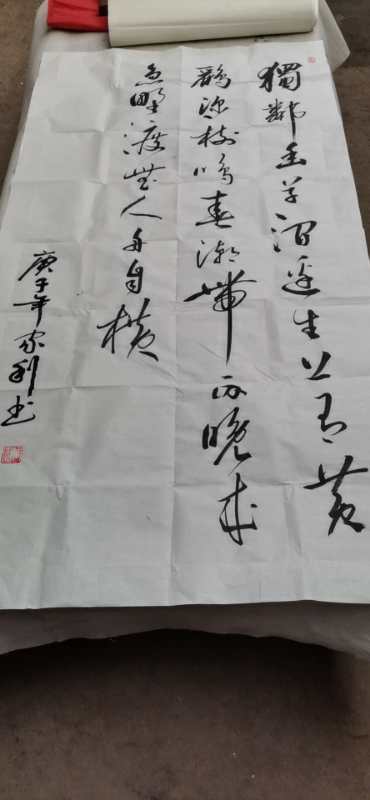 獨憐幽草澗邊生上有黄
鸝深樹鳴春潮帶雨晚来
急野渡無人舟自横
庚子年家利书